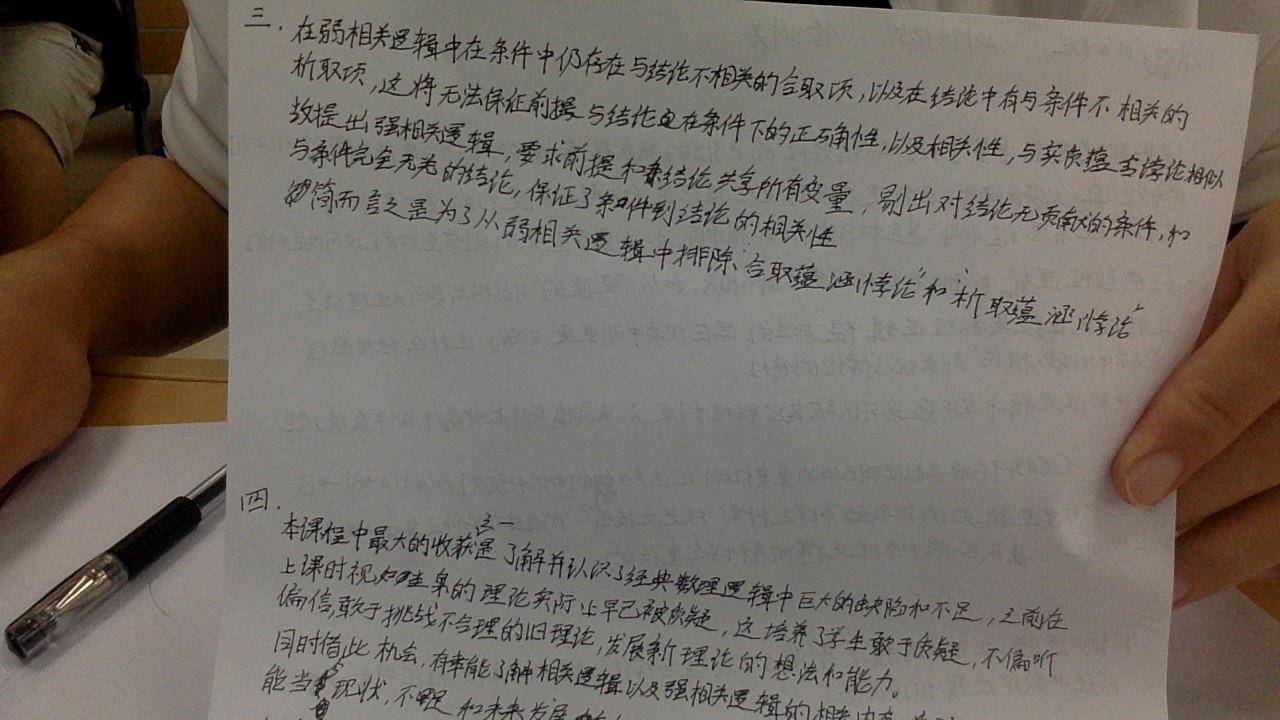 三. 在弱相关逻辑中在条件中仍存在与结论不相关的合取项,以及在结论中有与条件不相关的
析取项,这将无法保证前提与结论在条件下的正确性,以及相关性,与实质蕴含悖论相似
故提出强相关逻辑,要求前提和结论共享所有变量,剔出对结论无贡献的条件,和
与条件完全无关的结论,保证了条件到结论的相关性
简而言之是为了从弱相关逻辑中排除“合取蕴涵悖论”和“析取蕴涵悖论”
四.
本课程中最大的收获之一是了解并认识了经典数理逻辑中巨大的缺陷和不足,之前在
上课时视如圭臬的理论实际上早已被质疑,这培养了学生敢于质疑,不偏听
偏信,敢于挑战不合理的旧理论,发展新理论的想法和能力。
同时借此机会,有幸能了解相关逻辑以及强相关逻辑的相关内容
能当 现状,不足和未来发展